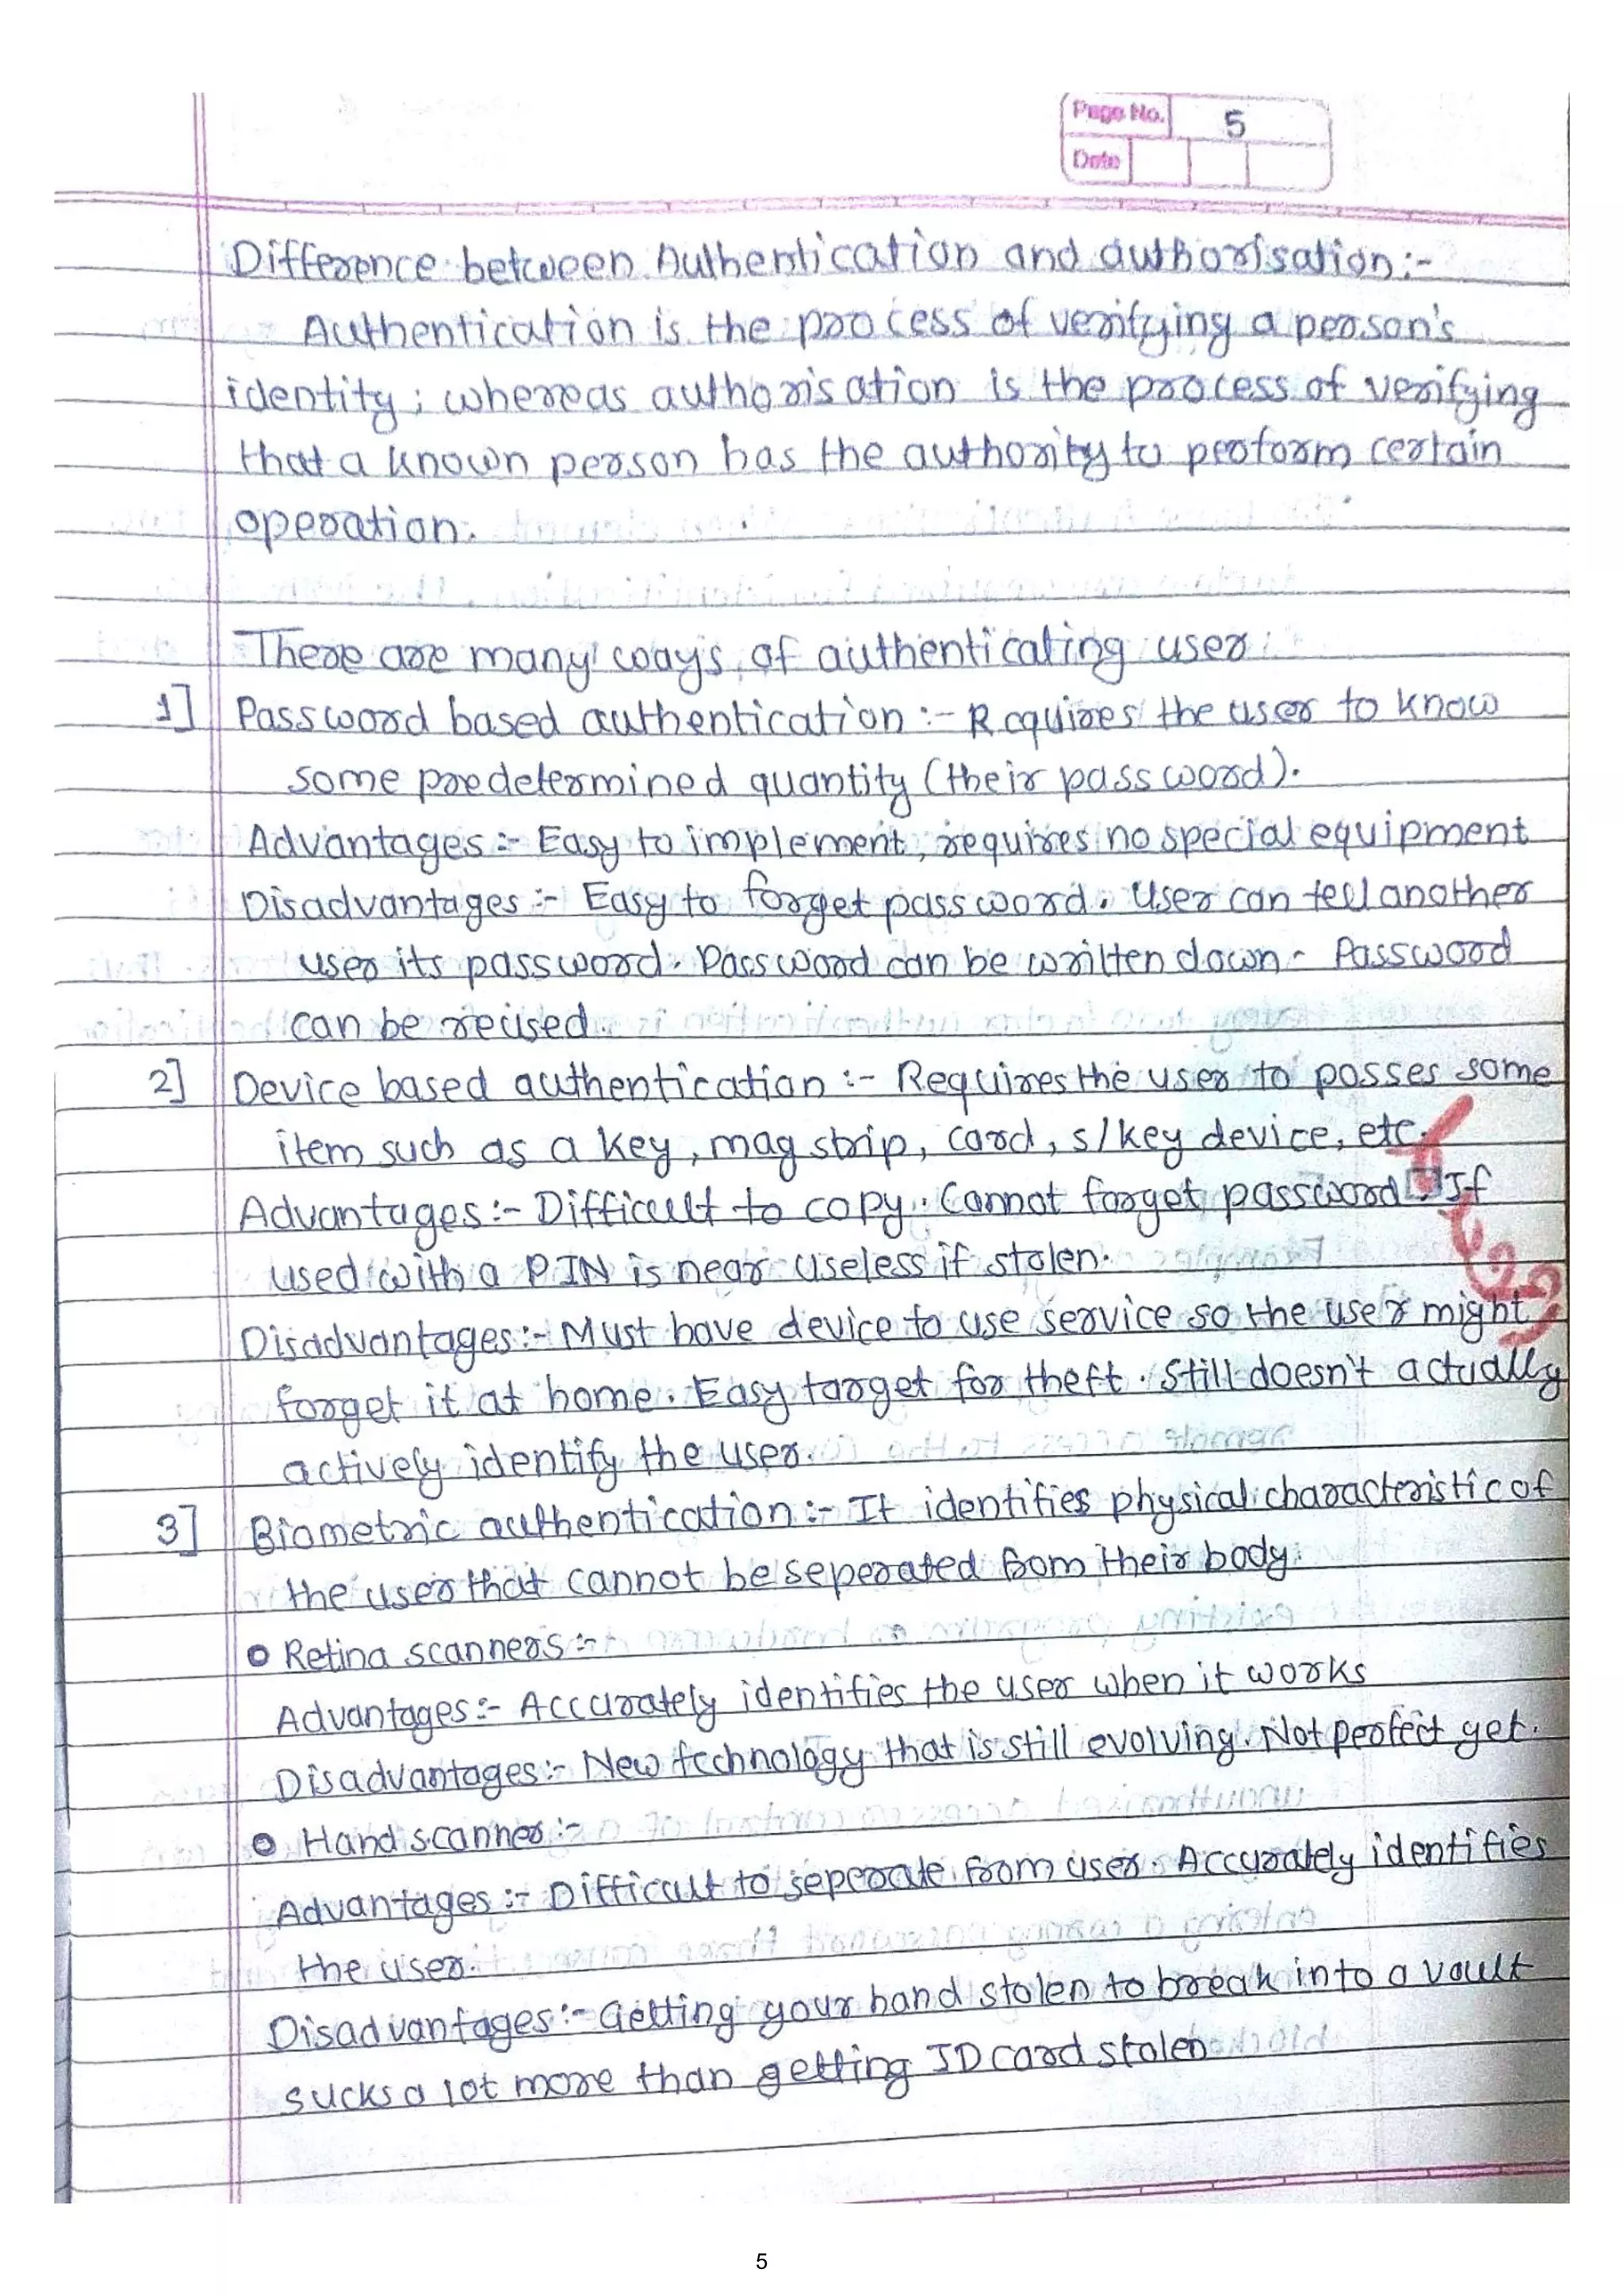 Page No. 5
Date
Difference between Authentication and authorisation:-
Authentication is the process of verifying a person's
identity; whereas authorisation is the process of verifying
that a known person has the authority to perform certain
operation.
There are many ways of authenticating user
1] Password based authentication :- Requires the user to know
some predetermined quantity (their password).
Advantages :- Easy to implement, requires no special equipment
Disadvantages :- Easy to forget password. User can tell another
user its password. Password can be written down. Password
can be reused.
2] Device based authentication :- Requires the user to posses some
item such as a key, mag strip, card, s/key device, etc.
Advantages:- Difficult to copy. Cannot forget password. If
used with a PIN is near useless if stolen.
Disadvantages:- Must have device to use service so the user might
forget it at home. Easy target for theft. Still doesn't actually
actively identify the user.
3] Biometric authentication :- It identifies physical characteristic of
the user that cannot be seperated from their body.
Retina scanners :-
Advantages :- Accurately identifies the user when it works
Disadvantages :- New technology that is still evolving. Not perfect yet.
Hand scanner :-
Advantages :- Difficult to seperate from user. Accurately identifies
the user.
Disadvantages :- Getting your hand stolen to break into a vault
sucks a lot more than getting ID card stolen
5